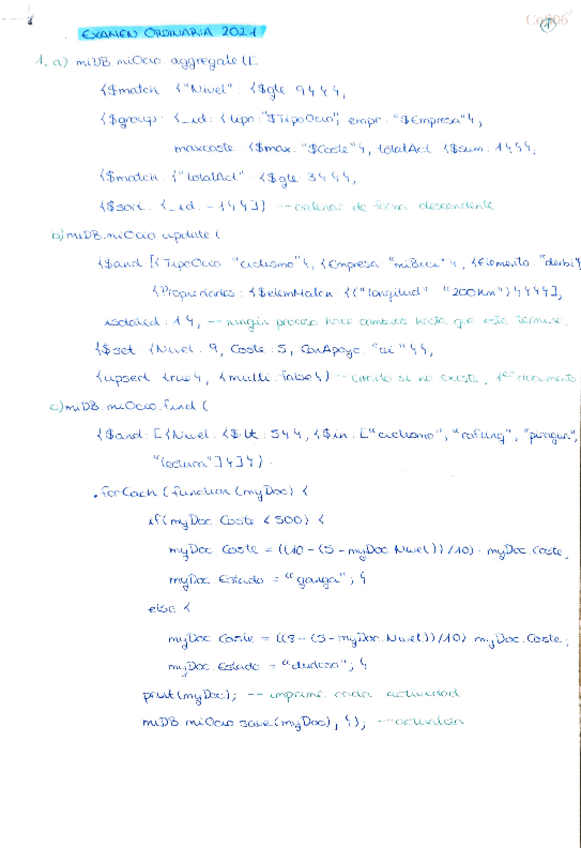 EXAMEN ORDINARIA 2021
1
1. a) miDB.miOcio.aggregate([
{$match: {"Nivel": {$gte: 9}}},
{$group: {_id: {tipo: "$TipoOcio", empr: "$Empresa"},
maxcoste: {$max: "$Coste"}, totalAct: {$sum: 1}}},
{$match: {"totalAct": {$gte: 3}}},
{$sort: {_id: -1}}]) -- ordenar de forma descendente
b) miDB.miOcio.update(
{$and: [{TipoOcio: "ciclismo"}, {Empresa: "miBici"}, {Elemento: "derbi"}
{Propiedades: {$elemMatch: {("longitud": "200Km")}}}],
isolated: 1}, -- ningún proceso hace cambios hasta que este termine.
{$set: {Nivel: 9, Coste: 5, ConApoyo: "si"}},
{upsert: true}, {multi: false}) -- crearlo si no existe, 1er documento
c) miDB.miOcio.find(
{$and: [{Nivel: {$lt: 5}}, {$in: ["ciclismo", "rafting", "piragua",
"lectura"]}]})
.forEach(function(myDoc) {
if(myDoc.Coste < 500) {
myDoc.Coste = ((10-(5-myDoc.Nivel))/10) · myDoc.coste,
myDoc.Estado = "ganga"; }
else {
myDoc.Coste = ((8-(5-myDoc.Nivel))/10) myDoc.Coste;
myDoc.Estado = "dudoso"; }
print(myDoc); -- imprime cada actividad
miDB.miOcio.save(myDoc), }); -- actualiza